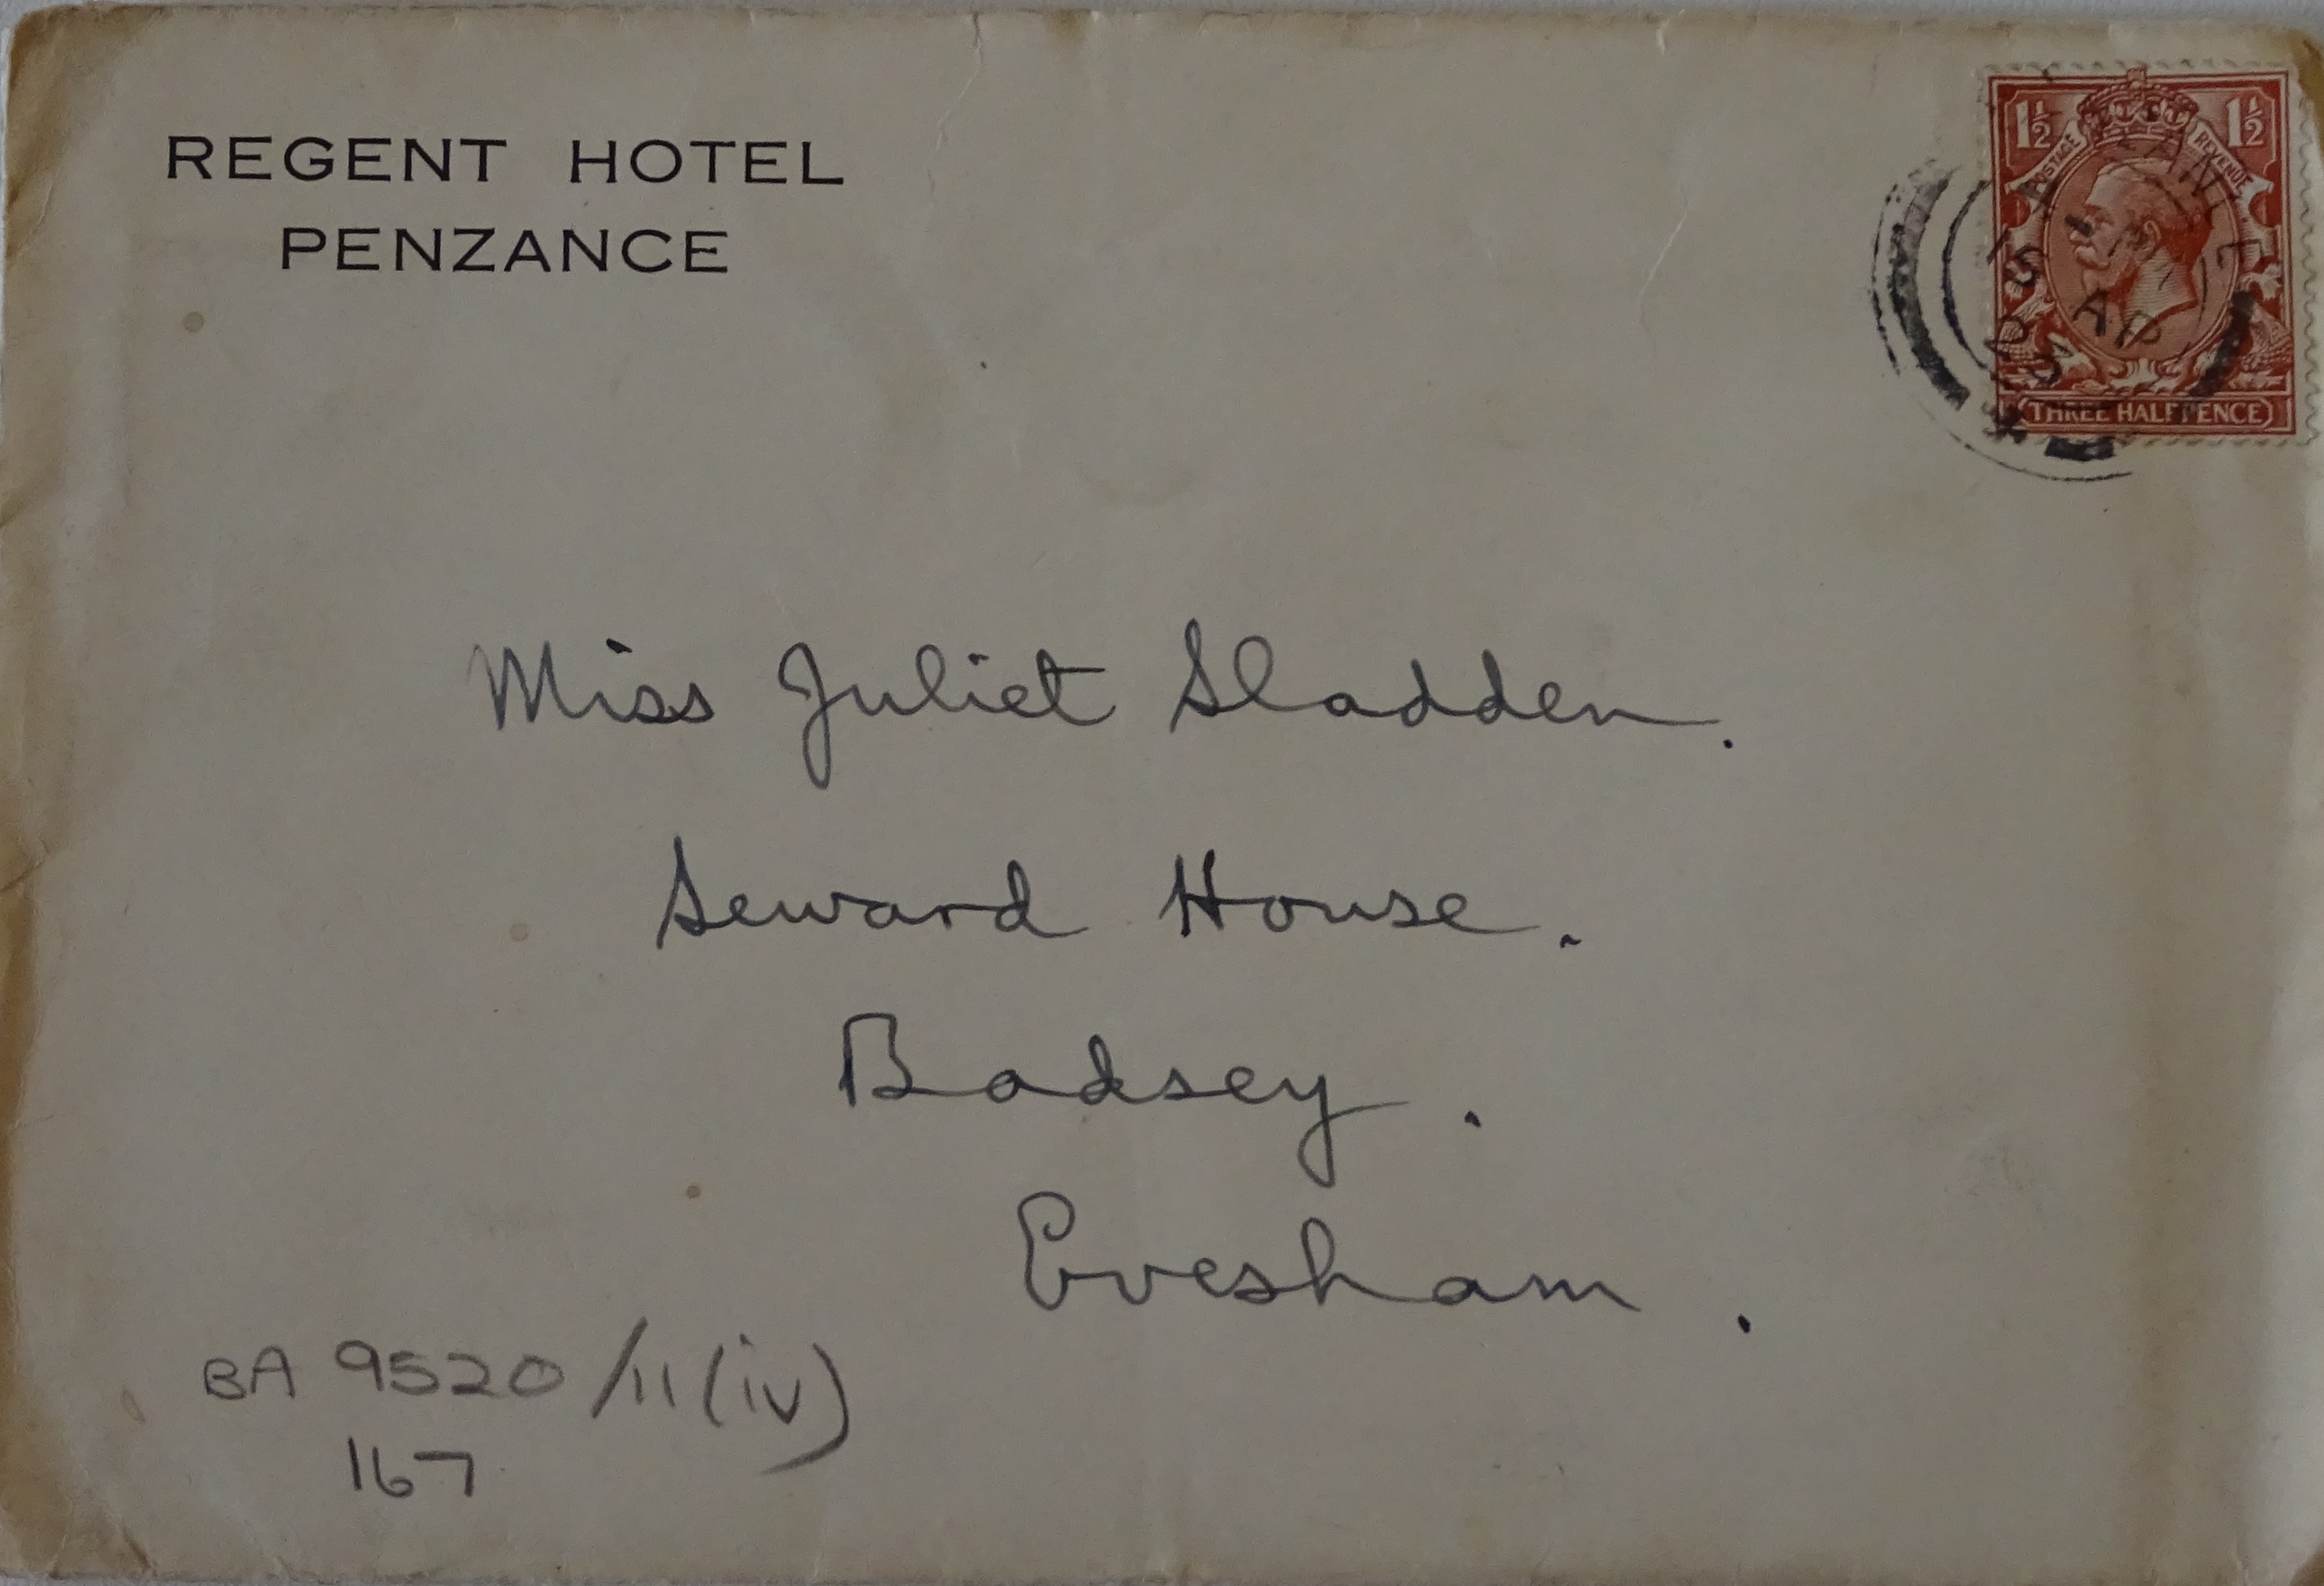 REGENT HOTEL
PENZANCE
1½ 1½
POSTAGE REVENUE
AP
THREE HALFPENCE
Miss Juliet Sladden.
Seward House.
Badsey.
Evesham.
BA 9520/11(iv)
167